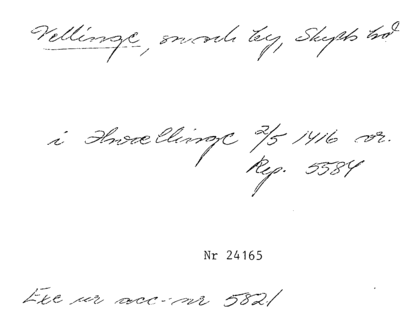 Vellinge, sn och by, Skytts hd
i Hwellinge 2/5 1416 or.
Rep. 5584
Nr 24165
Exc ur acc-nr 5821